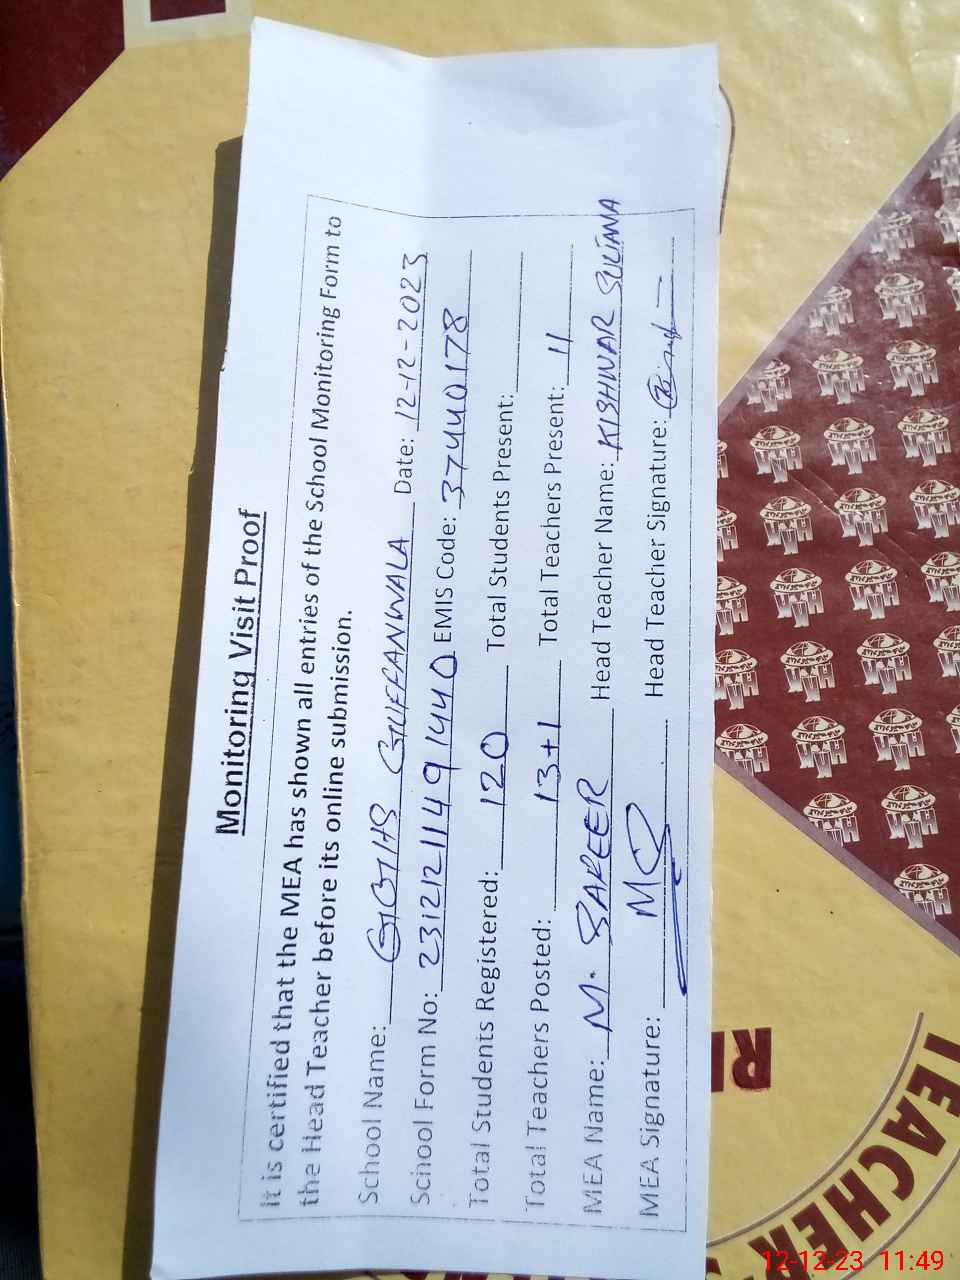 Monitoring Visit Proof
It is certified that the MEA has shown all entries of the School Monitoring Form to
the Head Teacher before its online submission.
School Name: GGHS GUFFANWALA Date: 12-12-2023
School Form No: 23121211491440 EMIS Code: 37440178
Total Students Registered: 120 Total Students Present:
Total Teachers Posted: 13+1 Total Teachers Present: 11
MEA Name: M. SAREER Head Teacher Name: KISHWAR SULTANA
MEA Signature: MQ Head Teacher Signature:
TEACHER
12-12-23 11:49